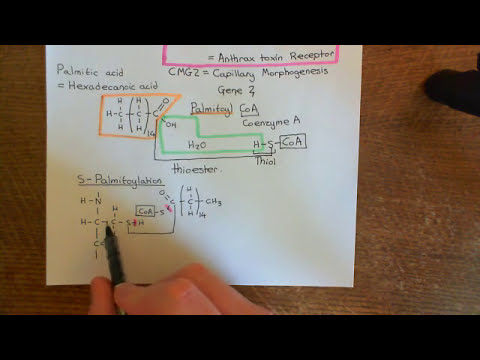 = Anthrax toxin Receptor
Palmitic acid
= Hexadecanoic acid
CMG2 = Capillary Morphogenesis
Gene 2
H H O
H-C-C-C
H H 14 OH
Palmitoyl CoA
Coenzyme A
H2O
H-S-CoA
Thiol
thioester
S-Palmitoylation
H-N
H
H-C-C-S-H
C
CoA-S
O
C
H
C-CH3
H 14